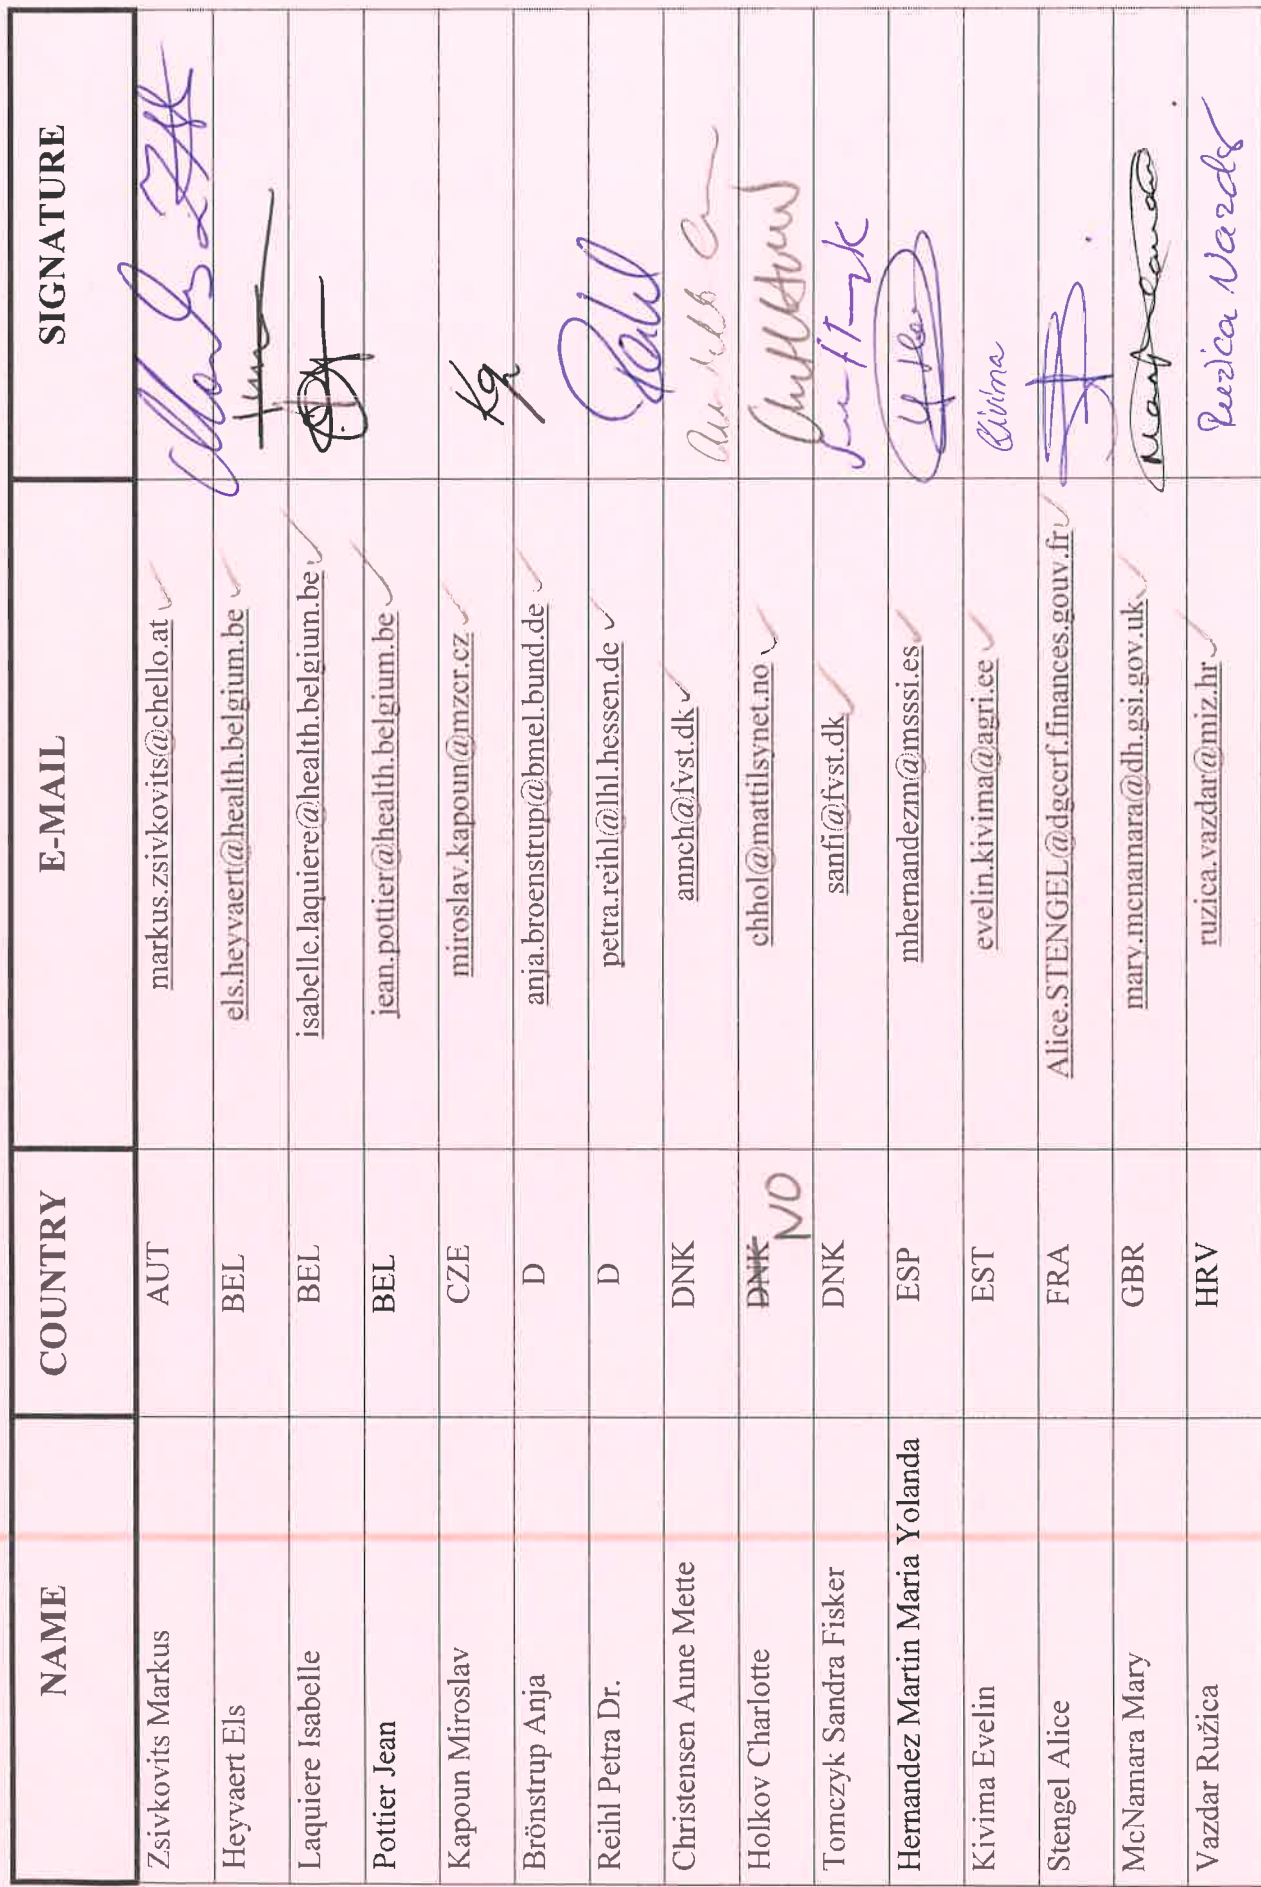 NAME COUNTRY E-MAIL SIGNATURE
Zsivkovits Markus AUT markus.zsivkovits@chello.at
Heyvaert Els BEL els.heyvaert@health.belgium.be
Laquiere Isabelle BEL isabelle.laquiere@health.belgium.be
Pottier Jean BEL jean.pottier@health.belgium.be
Kapoun Miroslav CZE miroslav.kapoun@mzcr.cz
Brönstrup Anja D anja.broenstrup@bmel.bund.de
Reihl Petra Dr. D petra.reihl@lhl.hessen.de Reihl
Christensen Anne Mette DNK annch@fvst.dk
Holkov Charlotte DNK NO chhol@mattilsynet.no
Tomczyk Sandra Fisker DNK sanfi@fvst.dk
Hernandez Martin Maria Yolanda ESP mhernandezm@msssi.es
Kivima Evelin EST evelin.kivima@agri.ee Kivima
Stengel Alice FRA Alice.STENGEL@dgccrf.finances.gouv.fr
McNamara Mary GBR mary.mcnamara@dh.gsi.gov.uk Mary McNamara
Vazdar Ružica HRV ruzica.vazdar@miz.hr Ruzica Vazdar